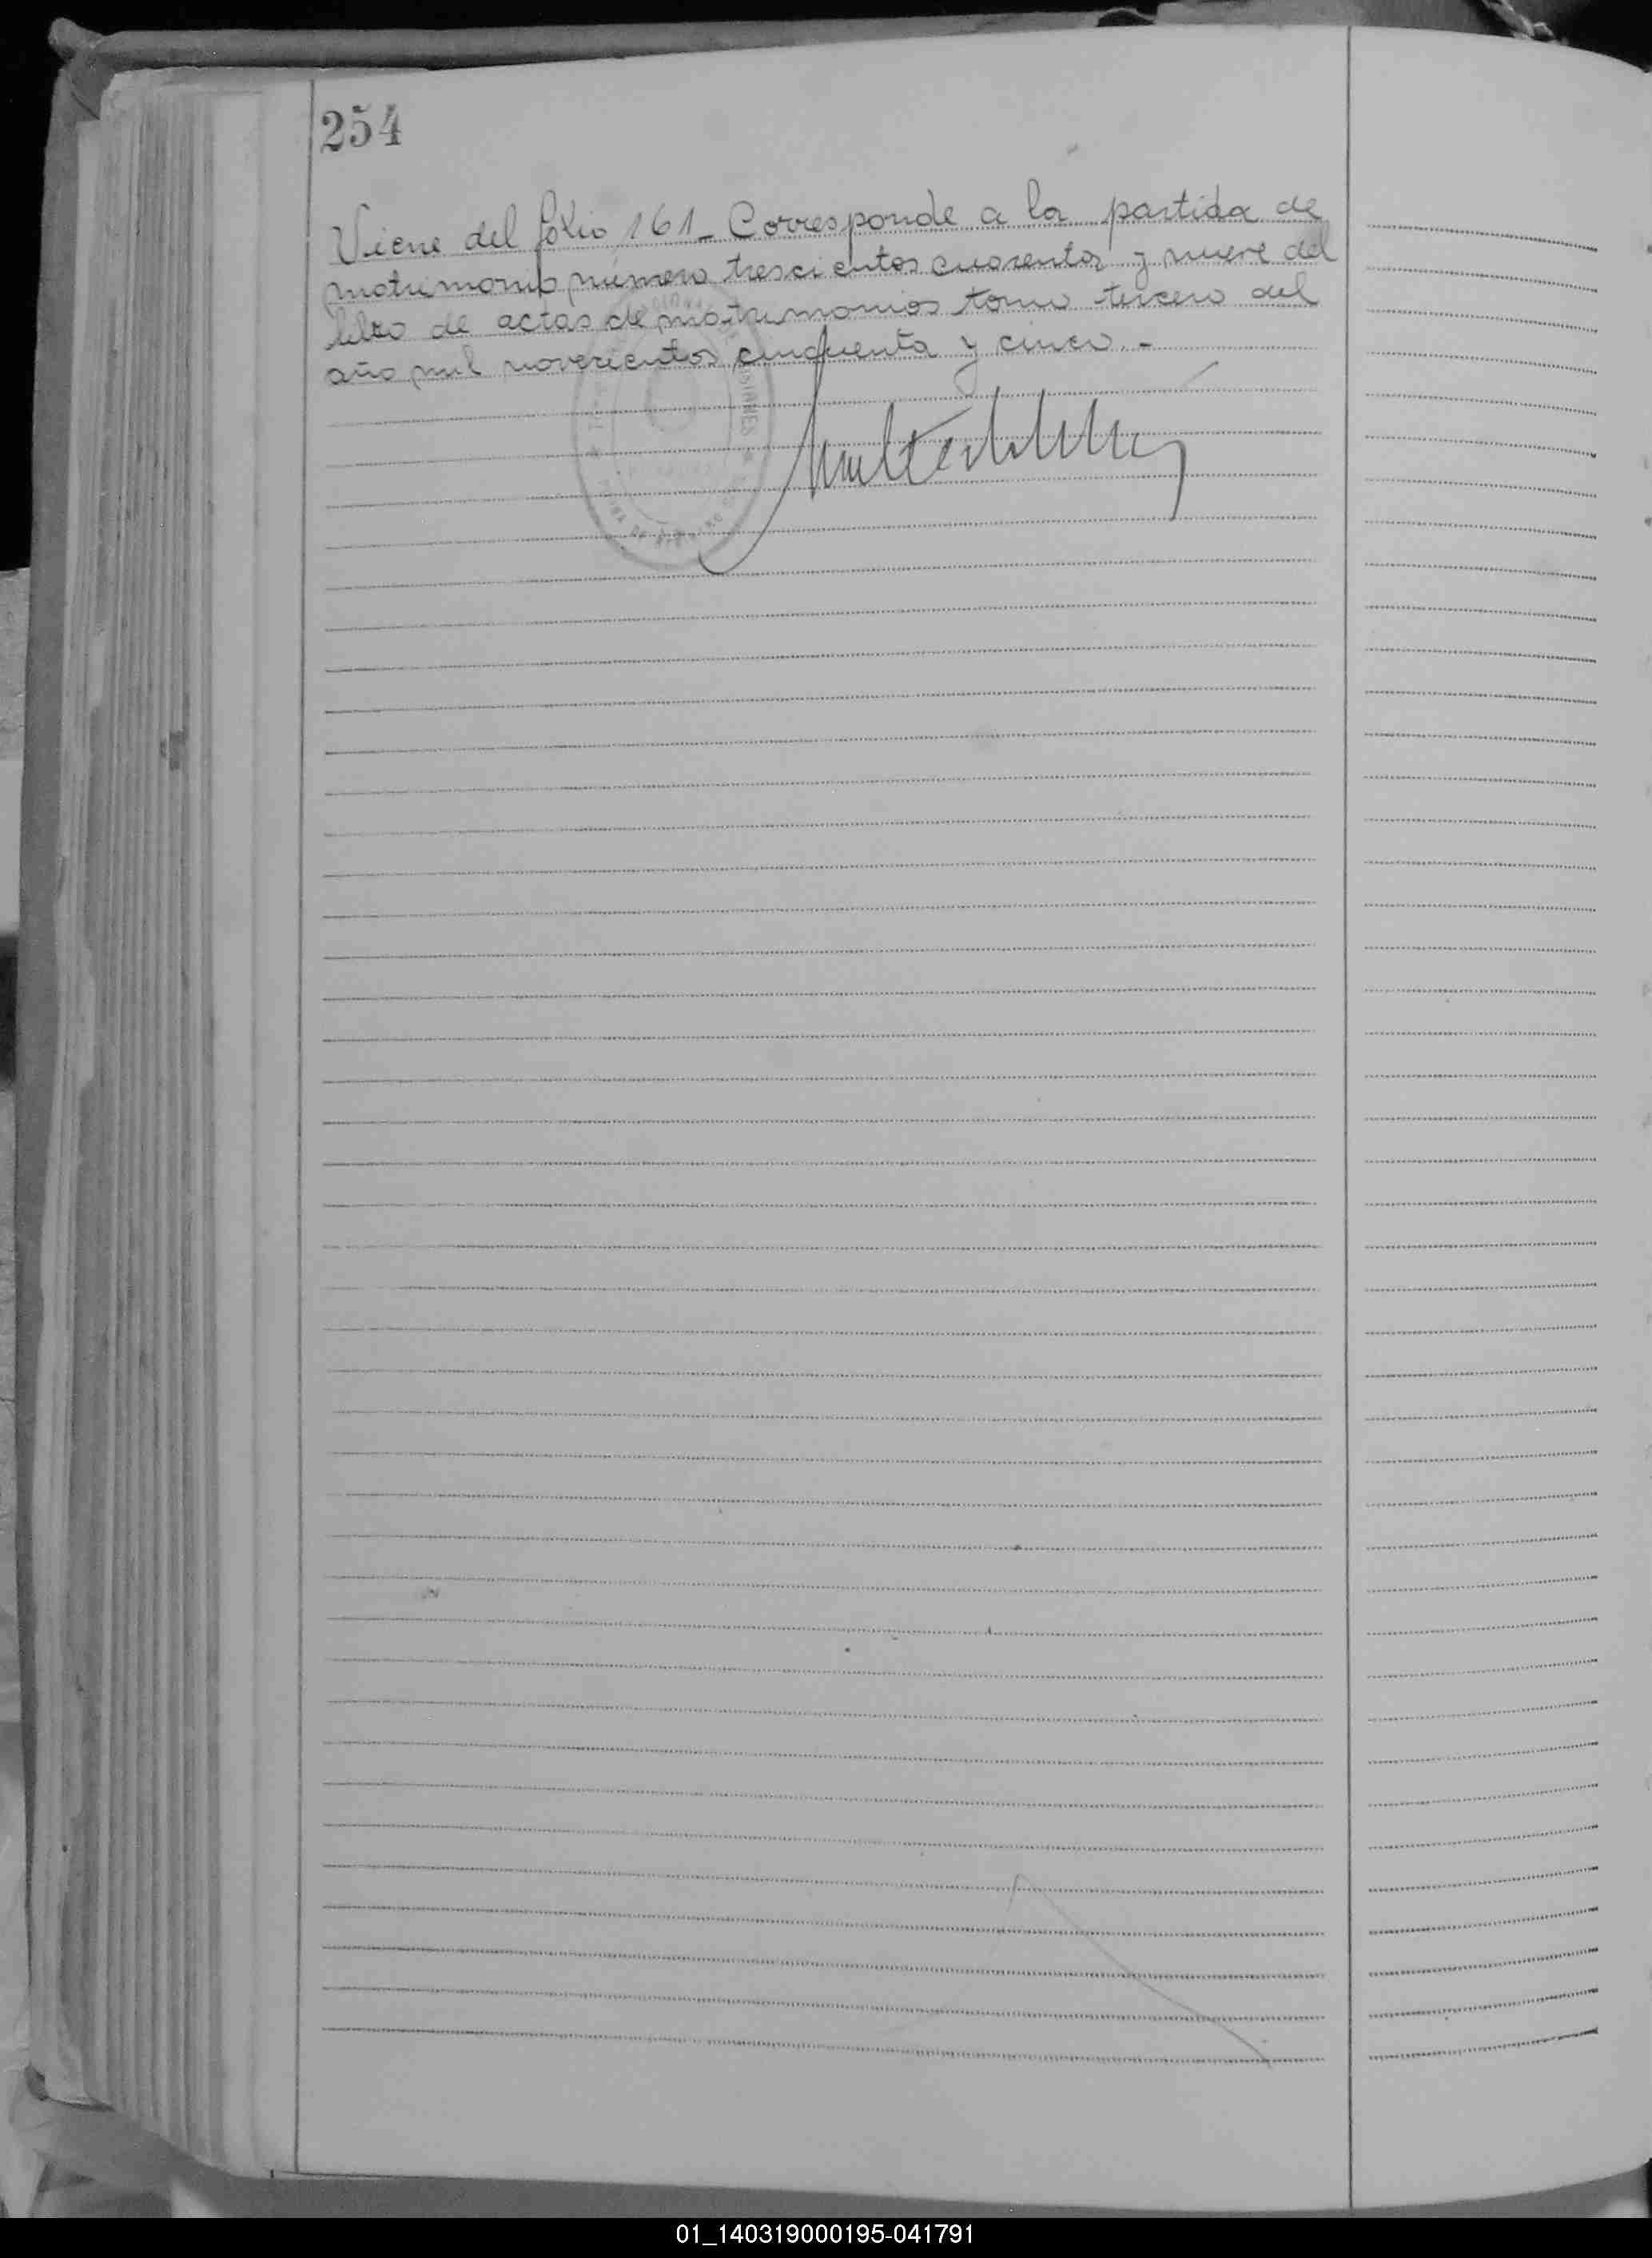 254
Viene del folio 161_ Corresponde a la partida de
matrimonio número trescientos cuarenta y nueve del
libro de actas de matrimonios tomo tercero del
año mil novecientos cincuenta y cinco.-
01_140319000195-041791